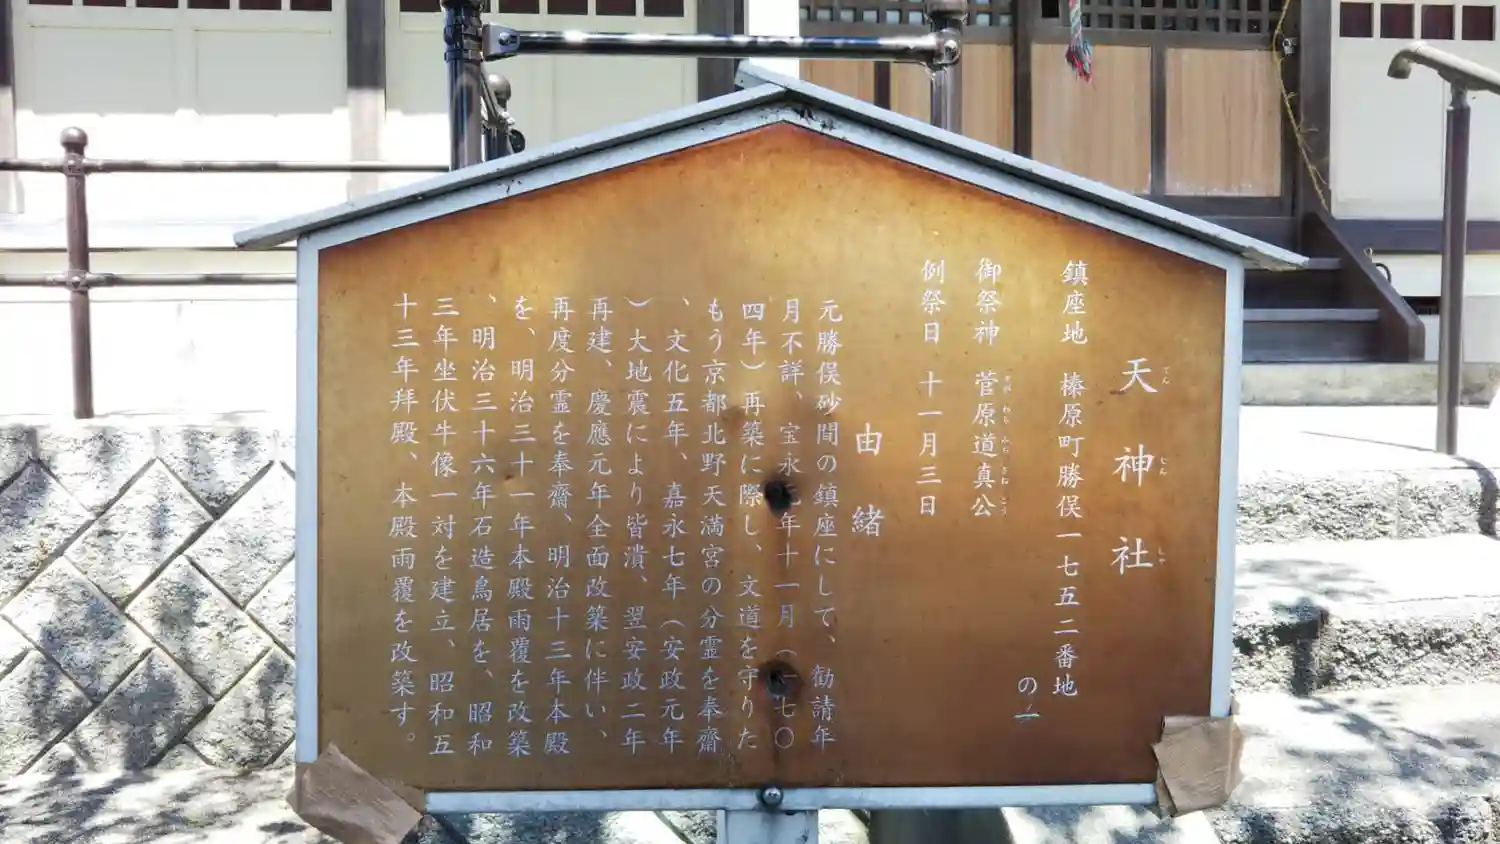 天神社
てんじんしゃ
鎮座地 榛原町勝俣一七五二番地
の一
御祭神 菅原道真公
例祭日 十一月三日
由緒
元勝俣砂間の鎮座にして、勧請年
月不詳、宝永元年十一月(一七〇
四年)再築に際し、文道を守りた
もう京都北野天満宮の分霊を奉齋
、文化五年、嘉永七年(安政元年
)大地震により皆潰、翌安政二年
再建、慶應元年全面改築に伴い、
再度分霊を奉齋、明治十三年本殿
を、明治三十一年本殿雨覆を改築
、明治三十六年石造鳥居を、昭和
三年坐伏牛像一対を建立、昭和五
十三年拝殿、本殿雨覆を改築す。